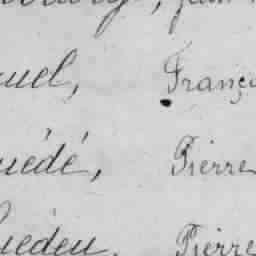 uel, Franç
uédé, Pierre
uédeu, Pierre